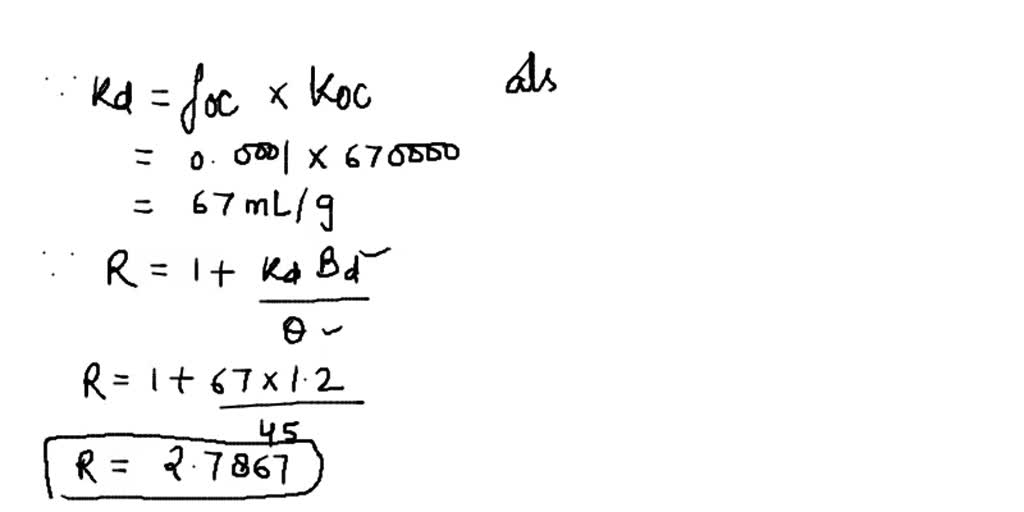 ∵ Kd = foc × Koc als
= 0.0001 × 670000
= 67 mL/g
∵ R = 1 + Kd Bd / θ
R = 1 + 67×1.2 / 45
R = 2.7867